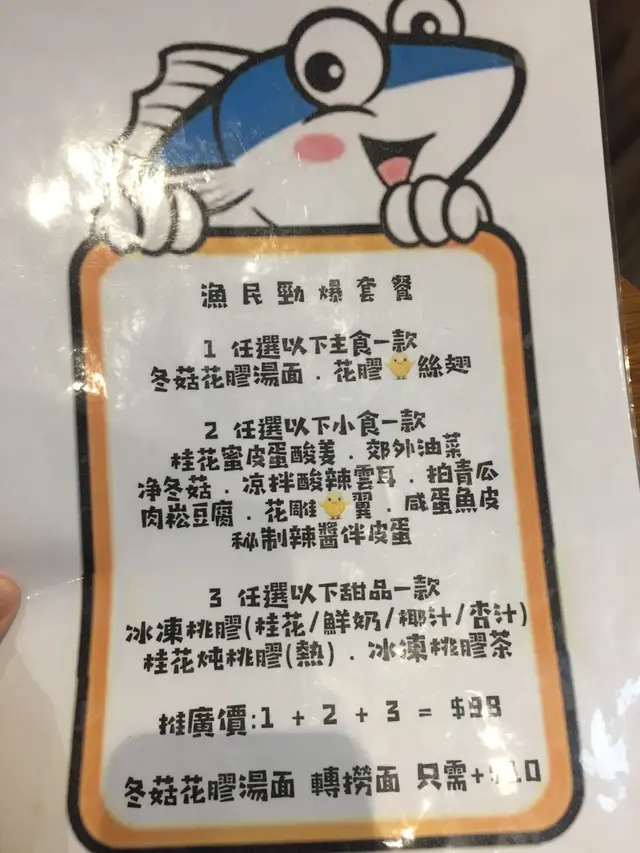 漁民勁爆套餐
1 任選以下主食一款
冬菇花膠湯面．花膠🐥絲翅
2 任選以下小食一款
桂花蜜皮蛋酸姜．郊外油菜
净冬菇．凉拌酸辣雲耳．拍青瓜
肉崧豆腐．花雕🐥翼．咸蛋魚皮
秘制辣醬伴皮蛋
3 任選以下甜品一款
冰凍桃膠(桂花/鮮奶/椰汁/杏汁)
桂花炖桃膠(熱)．冰凍桃膠茶
推廣價:1 + 2 + 3 = $98
冬菇花膠湯面 轉撈面 只需+$10